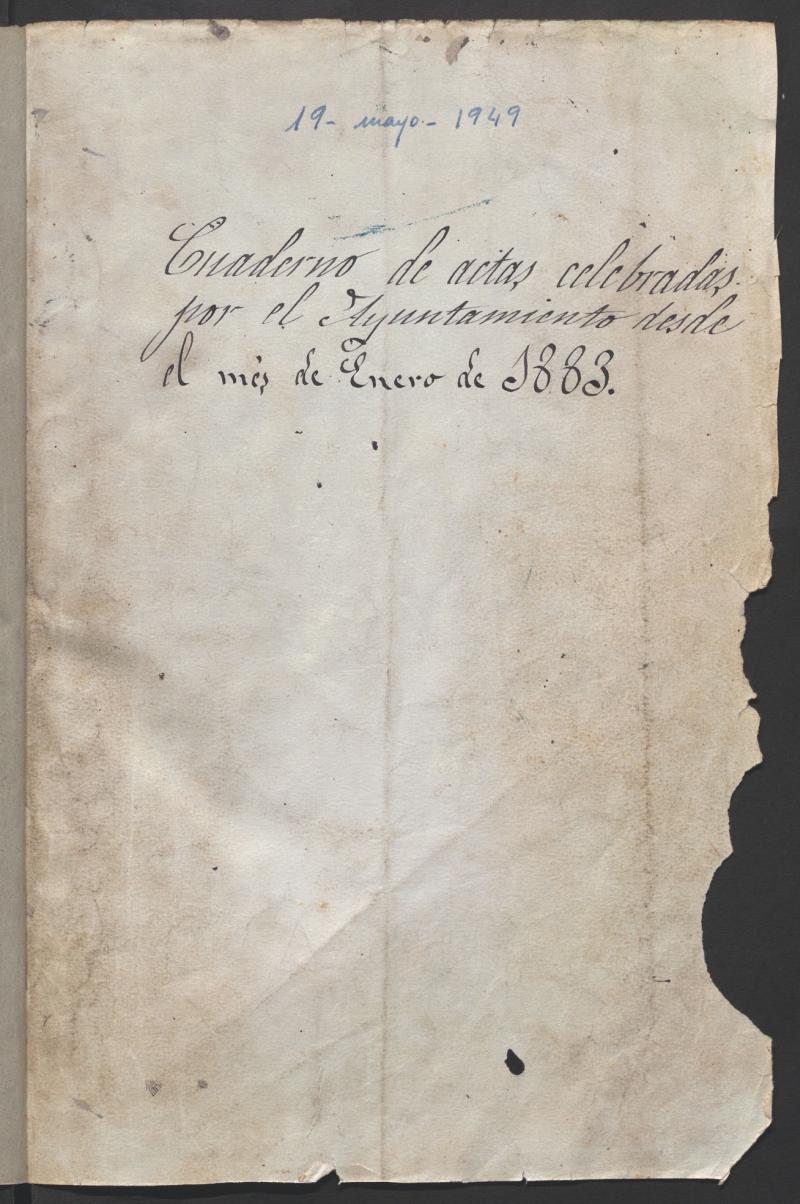 19- mayo- 1949
Cuaderno de actas celebradas
por el Ayuntamiento desde
el més de Enero de 1883.